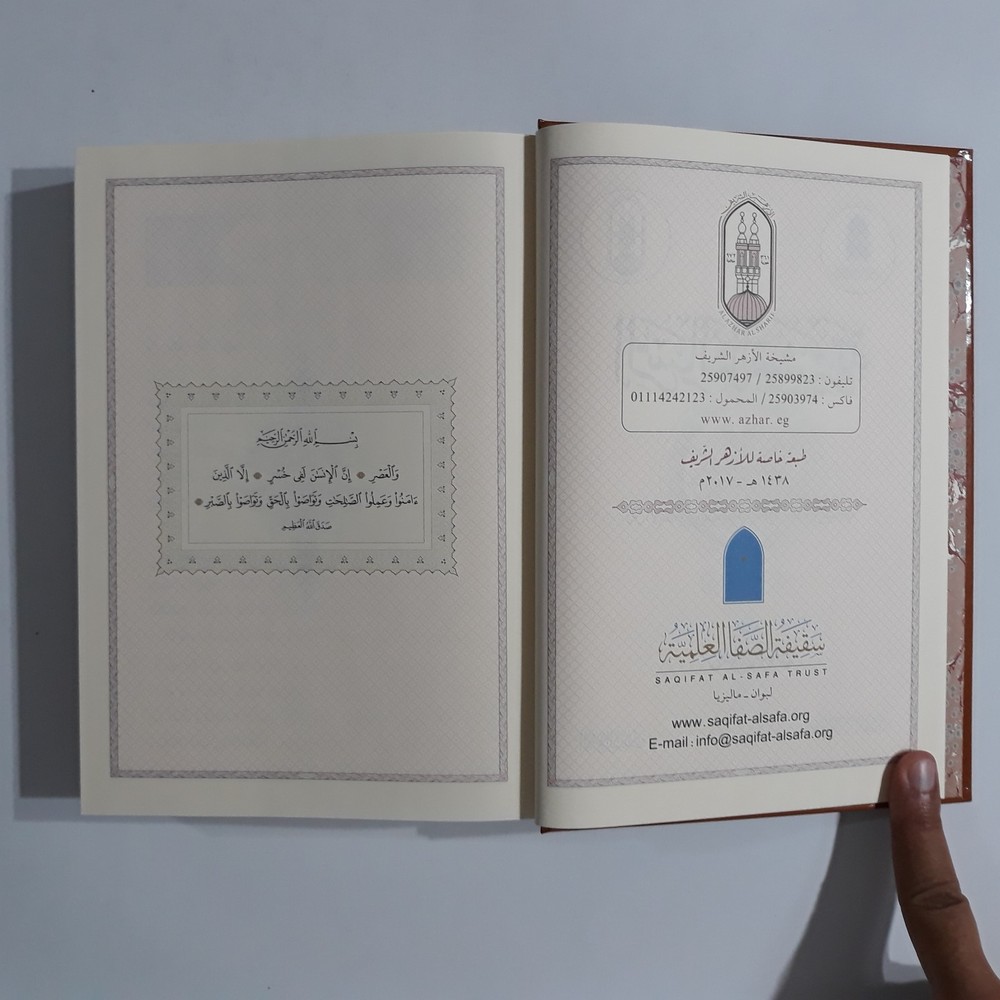 بِسْمِ ٱللَّهِ ٱلرَّحْمَٰنِ ٱلرَّحِيمِ
وَٱلْعَصْرِ * إِنَّ ٱلْإِنسَٰنَ لَفِى خُسْرٍ * إِلَّا ٱلَّذِينَ
ءَامَنُوا۟ وَعَمِلُوا۟ ٱلصَّٰلِحَٰتِ وَتَوَاصَوْا۟ بِٱلْحَقِّ وَتَوَاصَوْا۟ بِٱلصَّبْرِ *
صَدَقَ ٱللَّهُ ٱلْعَظِيم
AL AZHAR AL SHARIF
مشيخة الأزهر الشريف
تليفون : 25899823 / 25907497
فاكس : 25903974 / المحمول : 01114242123
www. azhar. eg
طبعة خاصة للأزهر الشريف
١٤٣٨ هـ - ٢٠١٧م
سَقِيفَةُ الصَّفَا العِلْمِيَّة
SAQIFAT AL-SAFA TRUST
لبوان - ماليزيا
www.saqifat-alsafa.org
E-mail : info@saqifat-alsafa.org